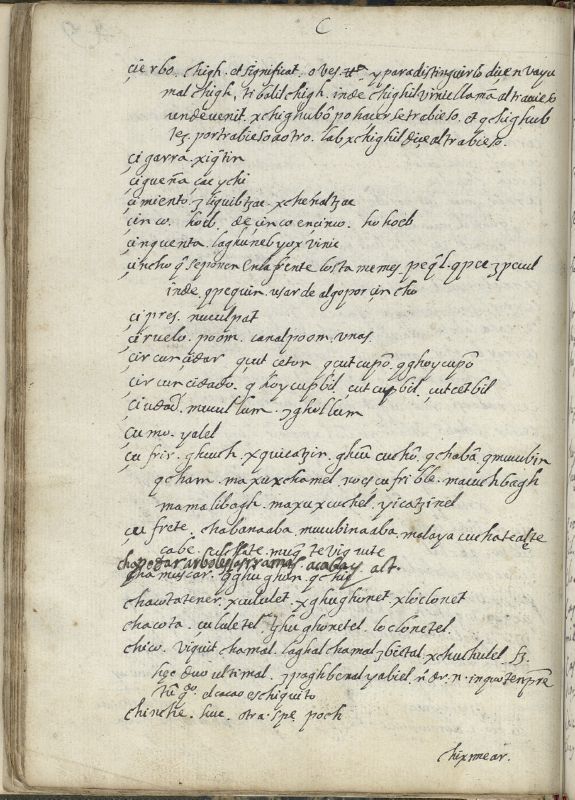 C
çierbo. chigh. et significat. oves. ytª. y para distinguirlo dizen vayu
malchigh, tibalilchigh. inde chighil vinic llamã al travieso
unde venit. xchighubõ po hacerse trabieso. et qchighub
tez. por trabieso a otro. lab xchighil dize al trabieso.
çigarra. xiqtin
çigueña caeychi
çimiento. ȝ liquibltzae. xcheñaltzae
çinco. hoeb. de çinco en çinco. ho hoeb
çinquenta. laghuneb yox vinic
çincho q̃ se ponen en la frente los tamemes. peq̃l. qpec ȝ pecul
inde. qpequin. usar de algo por çincho
çipres. nuculpat
çiruelo. poom. canalpoom. unas
çircuncidar qcut ceton qcutcupõ. qghoycupõ
çircuncidado. q̃ hoycupbil cutcupbil. cutcetbil
çiudad. mucul lum. ȝ ghul lum
çumo. yalel
çufrir. ghuuch. xquicatzin. ghuũ cuchõ. qchabã. qmucubin
qcham. maxuxchamel. no es çufrible. maucħbagh
mamalibagh. maxuxcuchel. yicatzinel
çufrete. chabanaaba. mucubinaaba. malaya cuchatealte
çabe. sufrate. muq̃ te viq̃ nute
chapodar arboles las rramas. acabay alt.
chamuscar. qghughun. qchiq
chacotatener. xcululet. xghughonet xloclonet
chacota. cululetel. ghughonetel. loclonetel
chico. viquit chamal. laghalchamal ȝ bictal. xchuchulel. sȝ.
hęc duo ultima. ȝ paghbenal yabiel. ñ dr. n. in quo tempre
tũ qº. el cacao es chiquito
chinche. huc. otra. spẽ poch
chixmear.